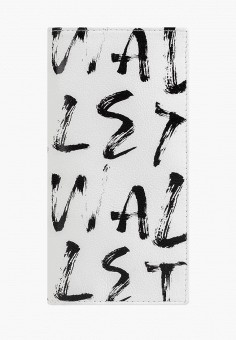 WAL
LET
WAL
LET